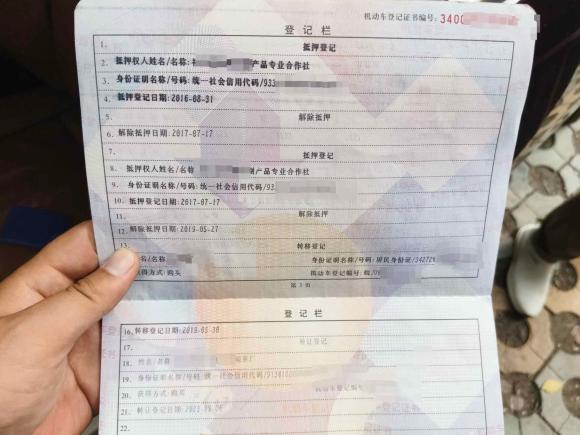 机动车登记证书编号: 3400
登 记 栏
1. 抵押登记
2. 抵押权人姓名/名称: 产品专业合作社
3. 身份证明名称/号码: 统一社会信用代码/933
4. 抵押登记日期: 2016-08-31
5. 解除抵押
6. 解除抵押日期: 2017-07-17
7. 抵押登记
8. 抵押权人姓名/名称 产品专业合作社
9. 身份证明名称/号码: 统一社会信用代码/93
10. 抵押登记日期: 2017-07-17
11. 解除抵押
12. 解除抵押日期: 2019-05-27
13. 转移登记
名/名称: 身份证明名称/号码: 居民身份证/34272
得方式: 购买 机动车登记编号: 皖
第 3 页
登 记 栏
16. 转移登记日期: 2019-05-30
17. 转让登记
18. 姓名/名称
19. 身份证明名称/号码 统一社会信用代码/913
20. 获得方式: 购买 机动车登记编号
21. 转让登记日期
22.